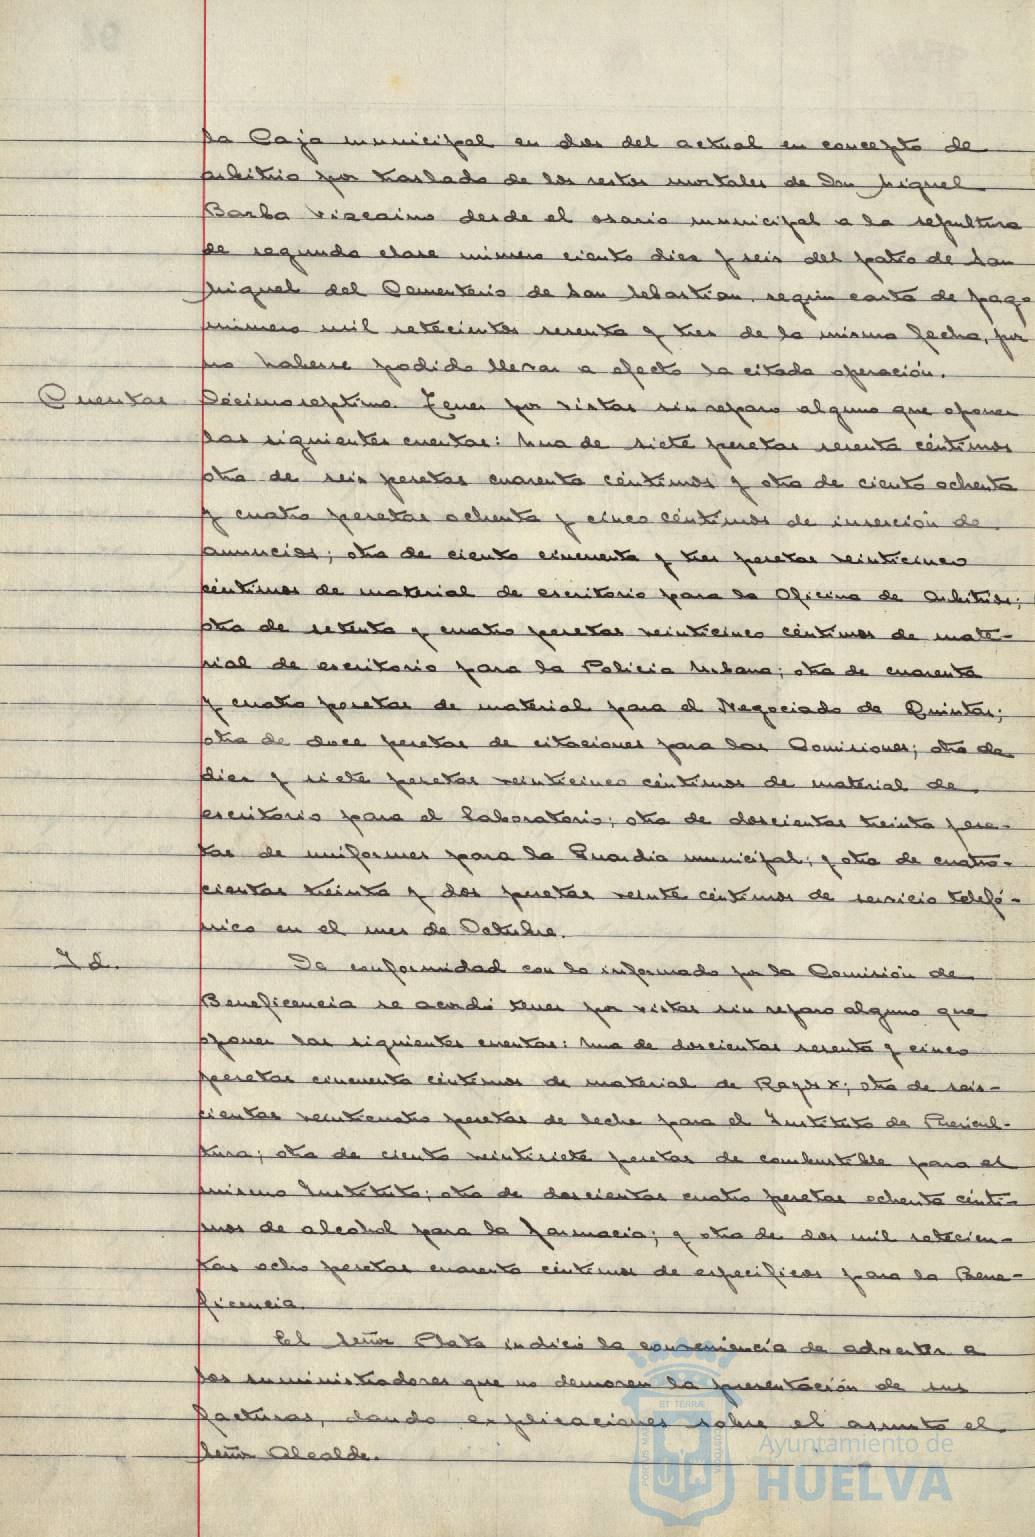 la Caja municipal en dos del actual en concepto de
arbitrio por traslado de los restos mortales de Don Miguel
Barba Viscaino desde el osario municipal a la sepultura
de segunda clase número ciento diez y seis del patio de San
Miguel del Cementerio de San Sebastian, según carta de pago
número mil setecientos sesenta y tres de la misma fecha, por
no haberse podido llevar a efecto la citada operación.
Cuentas Décimoseptimo. Tener por vistas sin reparo alguno que oponer
las siguientes cuentas: Una de siete pesetas sesenta céntimos
otra de seis pesetas cuarenta céntimos y otra de ciento ochenta
y cuatro pesetas ochenta y cinco céntimos de inserción de
anuncios; otra de ciento cincuenta y tres pesetas veinticinco
céntimos de material de escritorio para la Oficina de Arbitrios;
otra de setenta y cuatro pesetas veinticinco céntimos de mate-
rial de escritorio para la Policia Urbana; otra de cuarenta
y cuatro pesetas de material para el Negociado de Quintas;
otra de doce pesetas de citaciones para las Comisiones; otra de
diez y siete pesetas veinticinco céntimos de material de
escritorio para el Laboratorio; otra de doscientas treinta pese-
tas de uniformes para la Guardia municipal; y otra de cuatro-
cientas treinta y dos pesetas veinte céntimos de servicio telefó-
nico en el mes de Octubre.
Id. De conformidad con lo informado por la Comisión de
Beneficencia se acordó tener por vistas sin reparo alguno que
oponer las siguientes cuentas: Una de doscientas sesenta y cinco
pesetas cincuenta céntimos de material de Rayos X; otra de seis-
cientas veinticuatro pesetas de leche para el Instituto de Puericul-
tura; otra de ciento veintisiete pesetas de combustible para el
mismo Instituto; otra de doscientas cuatro pesetas ochenta cénti-
mos de alcohol para la farmacia; y otra de dos mil setecien-
tas ocho pesetas cuarenta céntimos de especificos para la Bene-
ficencia.
El Señor Plata indicó la conveniencia de advertir a
los suministradores que no demoren la presentación de sus
facturas, dando explicaciones sobre el asunto el
Señor Alcalde.
Ayuntamiento de
HUELVA